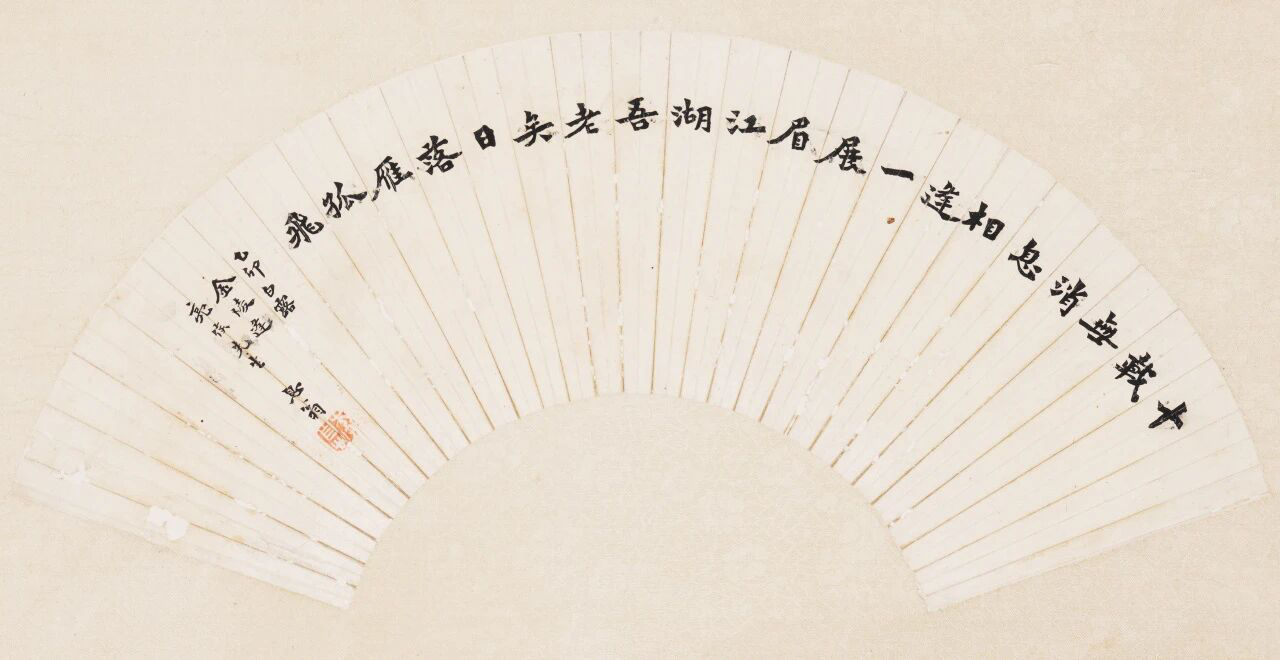 十載無消息相逢一展眉江湖吾老矣日落雁孤飛
乙卯白露
金陵逢
亮侯先生
息翁